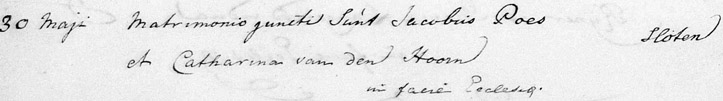 30 Maji Matrimonio juncti Sunt Jacobus Poes Sloten
et Catharina van den Hoorn
in facie Ecclesiæ.